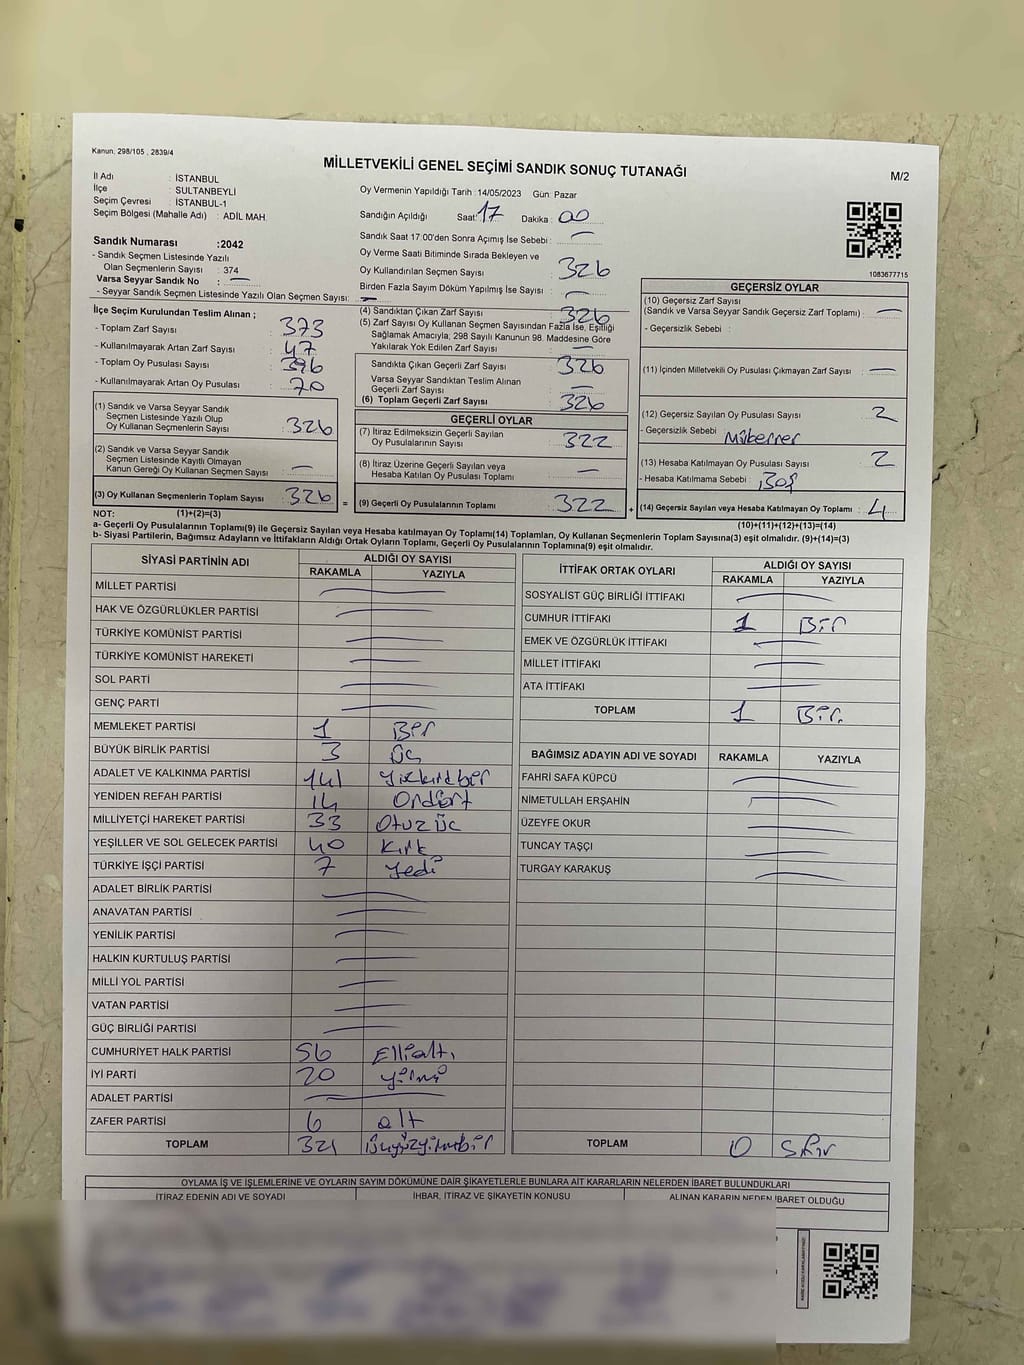 Kanun: 298/105 , 2839/4
MİLLETVEKİLİ GENEL SEÇİMİ SANDIK SONUÇ TUTANAĞI
M/2
İl Adı : İSTANBUL
İlçe : SULTANBEYLİ
Seçim Çevresi : İSTANBUL-1
Seçim Bölgesi (Mahalle Adı) : ADİL MAH.
Oy Vermenin Yapıldığı Tarih : 14/05/2023 Gün: Pazar
Sandığın Açıldığı Saat: 17 Dakika : 00
Sandık Saat 17:00'den Sonra Açımış İse Sebebi : —
Oy Verme Saati Bitiminde Sırada Bekleyen ve
Oy Kullandırılan Seçmen Sayısı 326
Birden Fazla Sayım Döküm Yapılmış İse Sayısı : —
1083677715
Sandık Numarası :2042
- Sandık Seçmen Listesinde Yazılı
Olan Seçmenlerin Sayısı : 374
Varsa Seyyar Sandık No : —
- Seyyar Sandık Seçmen Listesinde Yazılı Olan Seçmen Sayısı: —
İlçe Seçim Kurulundan Teslim Alınan ;
- Toplam Zarf Sayısı : 373
- Kullanılmayarak Artan Zarf Sayısı : 47
- Toplam Oy Pusulası Sayısı : 396
- Kullanılmayarak Artan Oy Pusulası : 70
(1) Sandık ve Varsa Seyyar Sandık
Seçmen Listesinde Yazılı Olup
Oy Kullanan Seçmenlerin Sayısı : 326
(2) Sandık ve Varsa Seyyar Sandık
Seçmen Listesinde Kayıtlı Olmayan
Kanun Gereği Oy Kullanan Seçmen Sayısı : —
(3) Oy Kullanan Seçmenlerin Toplam Sayısı : 326 =
(4) Sandıktan Çıkan Zarf Sayısı : 326
(5) Zarf Sayısı Oy Kullanan Seçmen Sayısından Fazla İse, Eşitliği
Sağlamak Amacıyla, 298 Sayılı Kanunun 98. Maddesine Göre
Yakılarak Yok Edilen Zarf Sayısı : —
Sandıkta Çıkan Geçerli Zarf Sayısı : 326
Varsa Seyyar Sandıktan Teslim Alınan
Geçerli Zarf Sayısı : —
(6) Toplam Geçerli Zarf Sayısı : 326
GEÇERLİ OYLAR
(7) İtiraz Edilmeksizin Geçerli Sayılan
Oy Pusulalarının Sayısı : 322
(8) İtiraz Üzerine Geçerli Sayılan veya
Hesaba Katılan Oy Pusulaları Toplamı : —
(9) Geçerli Oy Pusulalarının Toplamı : 322 +
GEÇERSİZ OYLAR
(10) Geçersiz Zarf Sayısı
(Sandık ve Varsa Seyyar Sandık Geçersiz Zarf Toplamı) : —
- Geçersizlik Sebebi :
(11) İçinden Milletvekili Oy Pusulası Çıkmayan Zarf Sayısı : —
(12) Geçersiz Sayılan Oy Pusulası Sayısı : 2
- Geçersizlik Sebebi :
(13) Hesaba Katılmayan Oy Pusulası Sayısı : 2
- Hesaba Katılmama Sebebi : Boş
(14) Geçersiz Sayılan veya Hesaba Katılmayan Oy Toplamı : 4
NOT: (1)+(2)=(3)
(10)+(11)+(12)+(13)=(14)
a- Geçerli Oy Pusulalarının Toplamı(9) ile Geçersiz Sayılan veya Hesaba katılmayan Oy Toplamı(14) Toplamları, Oy Kullanan Seçmenlerin Toplam Sayısına(3) eşit olmalıdır. (9)+(14)=(3)
b- Siyasi Partilerin, Bağımsız Adayların ve İttifakların Aldığı Ortak Oyların Toplamı, Geçerli Oy Pusulalarının Toplamına(9) eşit olmalıdır.
SİYASİ PARTİNİN ADI ALDIĞI OY SAYISI
RAKAMLA YAZIYLA
MİLLET PARTİSİ —
HAK VE ÖZGÜRLÜKLER PARTİSİ —
TÜRKİYE KOMÜNİST PARTİSİ —
TÜRKİYE KOMÜNİST HAREKETİ —
SOL PARTİ —
GENÇ PARTİ —
MEMLEKET PARTİSİ 1 Bir
BÜYÜK BİRLİK PARTİSİ 3 Üç
ADALET VE KALKINMA PARTİSİ 141 Yüzkırkbir
YENİDEN REFAH PARTİSİ 14 Ondört
MİLLİYETÇİ HAREKET PARTİSİ 33 Otuz üç
YEŞİLLER VE SOL GELECEK PARTİSİ 40 Kırk
TÜRKİYE İŞÇİ PARTİSİ 7 Yedi
ADALET BİRLİK PARTİSİ —
ANAVATAN PARTİSİ —
YENİLİK PARTİSİ —
HALKIN KURTULUŞ PARTİSİ —
MİLLİ YOL PARTİSİ —
VATAN PARTİSİ —
GÜÇ BİRLİĞİ PARTİSİ —
CUMHURİYET HALK PARTİSİ 56 Ellialtı
İYİ PARTİ 20 yirmi
ADALET PARTİSİ —
ZAFER PARTİSİ 6 altı
TOPLAM 321 üçyüzyirmibir
İTTİFAK ORTAK OYLARI ALDIĞI OY SAYISI
RAKAMLA YAZIYLA
SOSYALİST GÜÇ BİRLİĞİ İTTİFAKI —
CUMHUR İTTİFAKI 1 Bir
EMEK VE ÖZGÜRLÜK İTTİFAKI —
MİLLET İTTİFAKI —
ATA İTTİFAKI —
TOPLAM 1 Bir.
BAĞIMSIZ ADAYIN ADI VE SOYADI RAKAMLA YAZIYLA
FAHRİ SAFA KÜPCÜ —
NİMETULLAH ERŞAHİN —
ÜZEYFE OKUR —
TUNCAY TAŞÇI —
TURGAY KARAKUŞ —
TOPLAM 0 Sıfır
OYLAMA İŞ VE İŞLEMLERİNE VE OYLARIN SAYIM DÖKÜMÜNE DAİR ŞİKAYETLERLE BUNLARA AİT KARARLARIN NELERDEN İBARET BULUNDUKLARI
İTİRAZ EDENİN ADI VE SOYADI İHBAR, İTİRAZ VE ŞİKAYETİN KONUSU ALINAN KARARIN NEDEN İBARET OLDUĞU